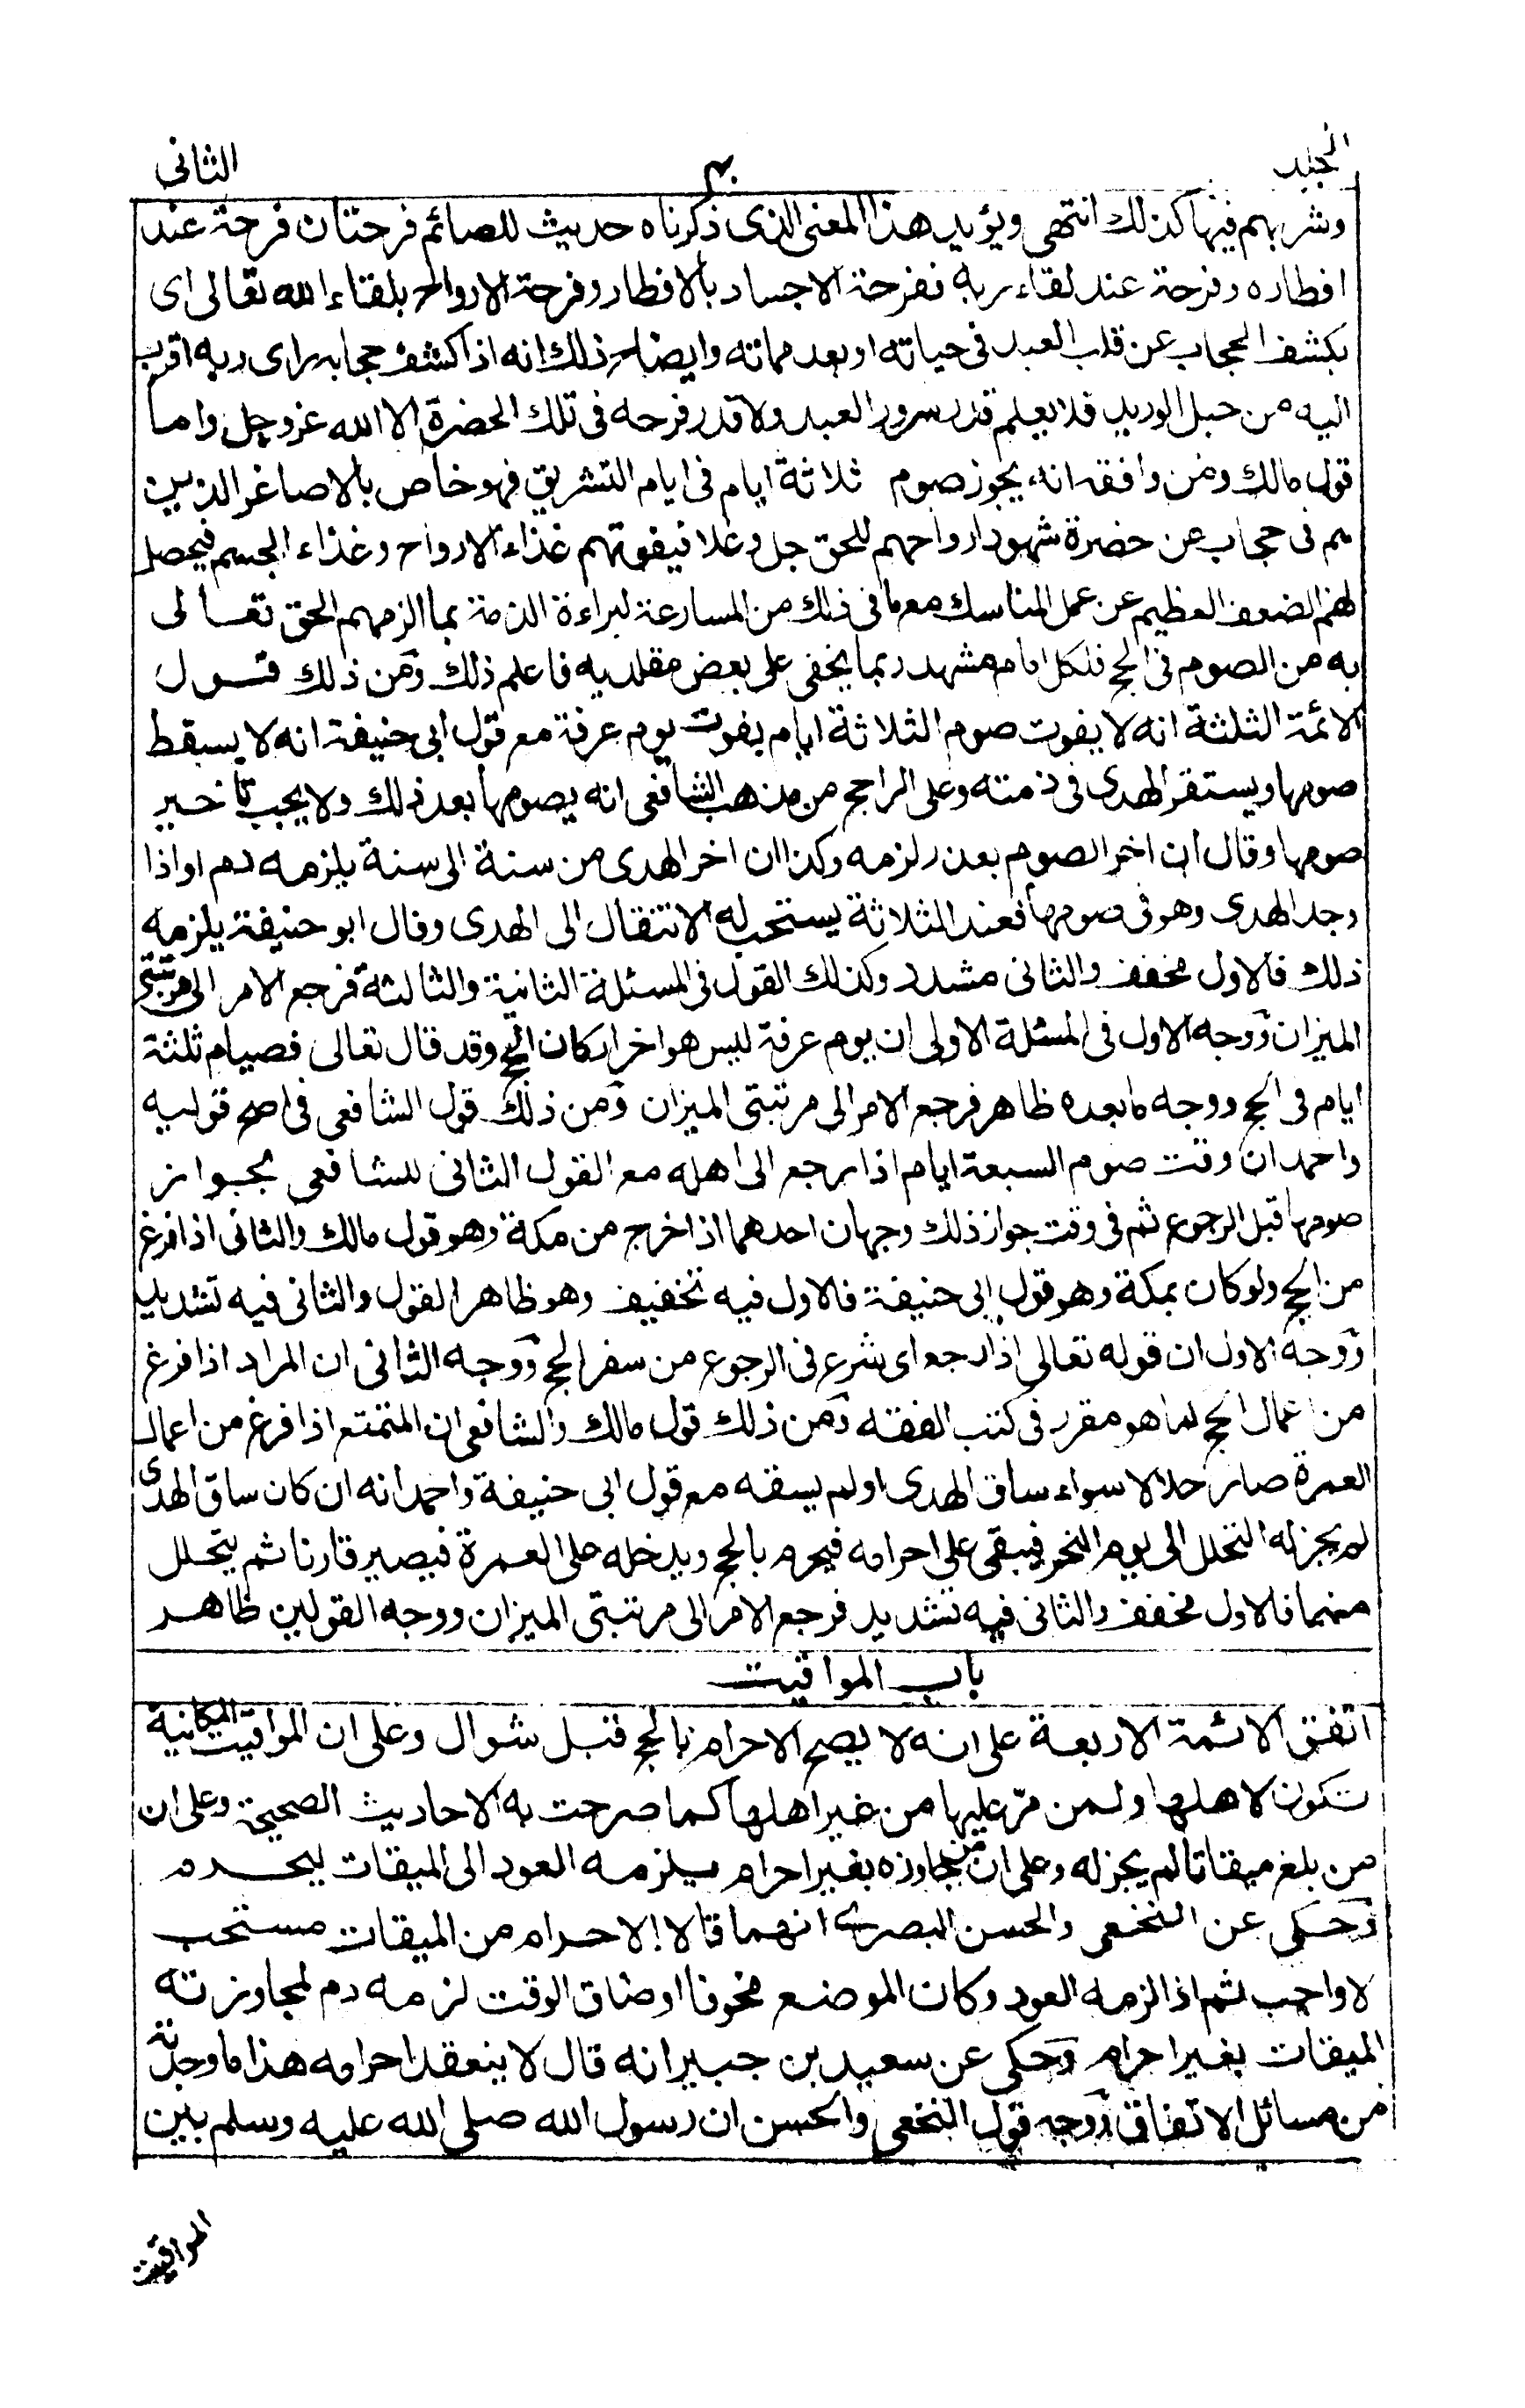 الجلد ٤٠ الثانى
وشربهم فيها كذلك انتهى ويؤيد هذا المعنى الذى ذكرناه حديث للصائم فرحتان فرحة عند
افطاره وفرحة عند لقاء ربه ففرحة الاجساد بالافطار وفرحة الارواح بلقاء الله تعالى اى
بكشف الحجاب عن قلب العبد فى حياته او بعد مماته وايضاح ذلك انه اذا كشف حجابه راى ربه اقرب
اليه من حبل الوريد فلا يعلم قدر سرور العبد ولا قدر فرحه فى تلك الحضرة الا الله عز وجل واما
قول مالك ومن وافقه انه يجوز صوم ثلاثة ايام فى ايام التشريق فهو خاص بالاصاغر الذين
هم فى حجاب عن حضرة شهود ارواحهم للحق جل وعلا فيفوتهم غذاء الارواح وغذاء الجسم فيحصل
لهم الضعف العظيم عن عمل المناسك مع ما فى ذلك من المسارعة لبراءة الذمة بما الزمهم الحق تعالى
به من الصوم فى الحج فلكل امام مشهد ربما يخفى على بعض مقلديه فاعلم ذلك ومن ذلك قول
الائمة الثلثة انه لا يفوت صوم الثلاثة ايام بفوت يوم عرفة مع قول ابى حنيفة انه لا يسقط
صومها ويستقر الهدى فى ذمته وعلى الراجح من مذهب الشافعى انه يصومها بعد ذلك ولا يجب تاخير
صومها وقال ان اخر الصوم بعذر لزمه وكذا ان اخر الهدى من سنة الى سنة يلزمه دم او اذا
وجد الهدى وهو فى صومها فعند الثلاثة يستحب له الانتقال الى الهدى وقال ابو حنيفة يلزمه
ذلك فالاول مخفف والثانى مشدد وكذلك القول فى المسئلة الثانية والثالثة فرجع الامر الى مرتبتى
الميزان ووجه الاول فى المسئلة الاولى ان يوم عرفة ليس هو اخر اركان الحج وقد قال تعالى فصيام ثلثة
ايام فى الحج ووجه ما بعده ظاهر فرجع الامر الى مرتبتى الميزان ومن ذلك قول الشافعى فى اصح قوليه
واحمد ان وقت صوم السبعة ايام اذا رجع الى اهله مع القول الثانى للشافعى بجواز
صومها قبل الرجوع ثم فى وقت جواز ذلك وجهان احدهما اذا خرج من مكة وهو قول مالك والثانى اذا فرغ
من الحج ولو كان بمكة وهو قول ابى حنيفة فالاول فيه تخفيف وهو ظاهر القول والثانى فيه تشديد
ووجه الاول ان قوله تعالى اذا رجع اى شرع فى الرجوع من سفر الحج ووجه الثانى ان المراد اذا فرغ
من اعمال الحج لما هو مقرر فى كتب الفقه ومن ذلك قول مالك والشافعى ان المتمتع اذا فرغ من اعمال
العمرة صار حلالا سواء ساق الهدى او لم يسقه مع قول ابى حنيفة واحمد انه ان كان ساق الهدى
لم يجز له التحلل الى يوم النحر فيبقى على احرامه فيحرم بالحج ويدخله على العمرة فيصير قارنا ثم يتحلل
منهما فالاول مخفف والثانى فيه تشديد فرجع الامر الى مرتبتى الميزان ووجه القولين ظاهر
باب المواقيت
اتفق الائمة الاربعة على انه لا يصح الاحرام بالحج قبل شوال وعلى ان المواقيت المكانية
تكون لاهلها ولمن مرّ عليها من غير اهلها كما صرحت به الاحاديث الصحيحة وعلى ان
من بلغ ميقاتا لم يجز له وعلى ان من جاوزه بغير احرام يلزمه العود الى الميقات ليحرم
وحكى عن النخعى والحسن البصرى انهما قالا الاحرام من الميقات مستحب
لا واجب ثم اذا لزمه العود وكان الموضع مخوفا او ضاق الوقت لزمه دم لمجاوزته
الميقات بغير احرام وحكى عن سعيد بن جبير انه قال لا ينعقد احرامه هذا ما وجدته
من مسائل الاتفاق ووجه قول النخعى والحسن ان رسول الله صلى الله عليه وسلم بين
المواقيت